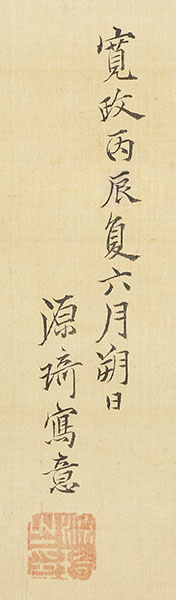 寛政丙辰夏六月朔日
源琦寫意